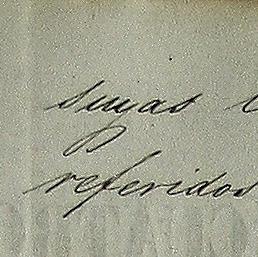 suyas
referidos